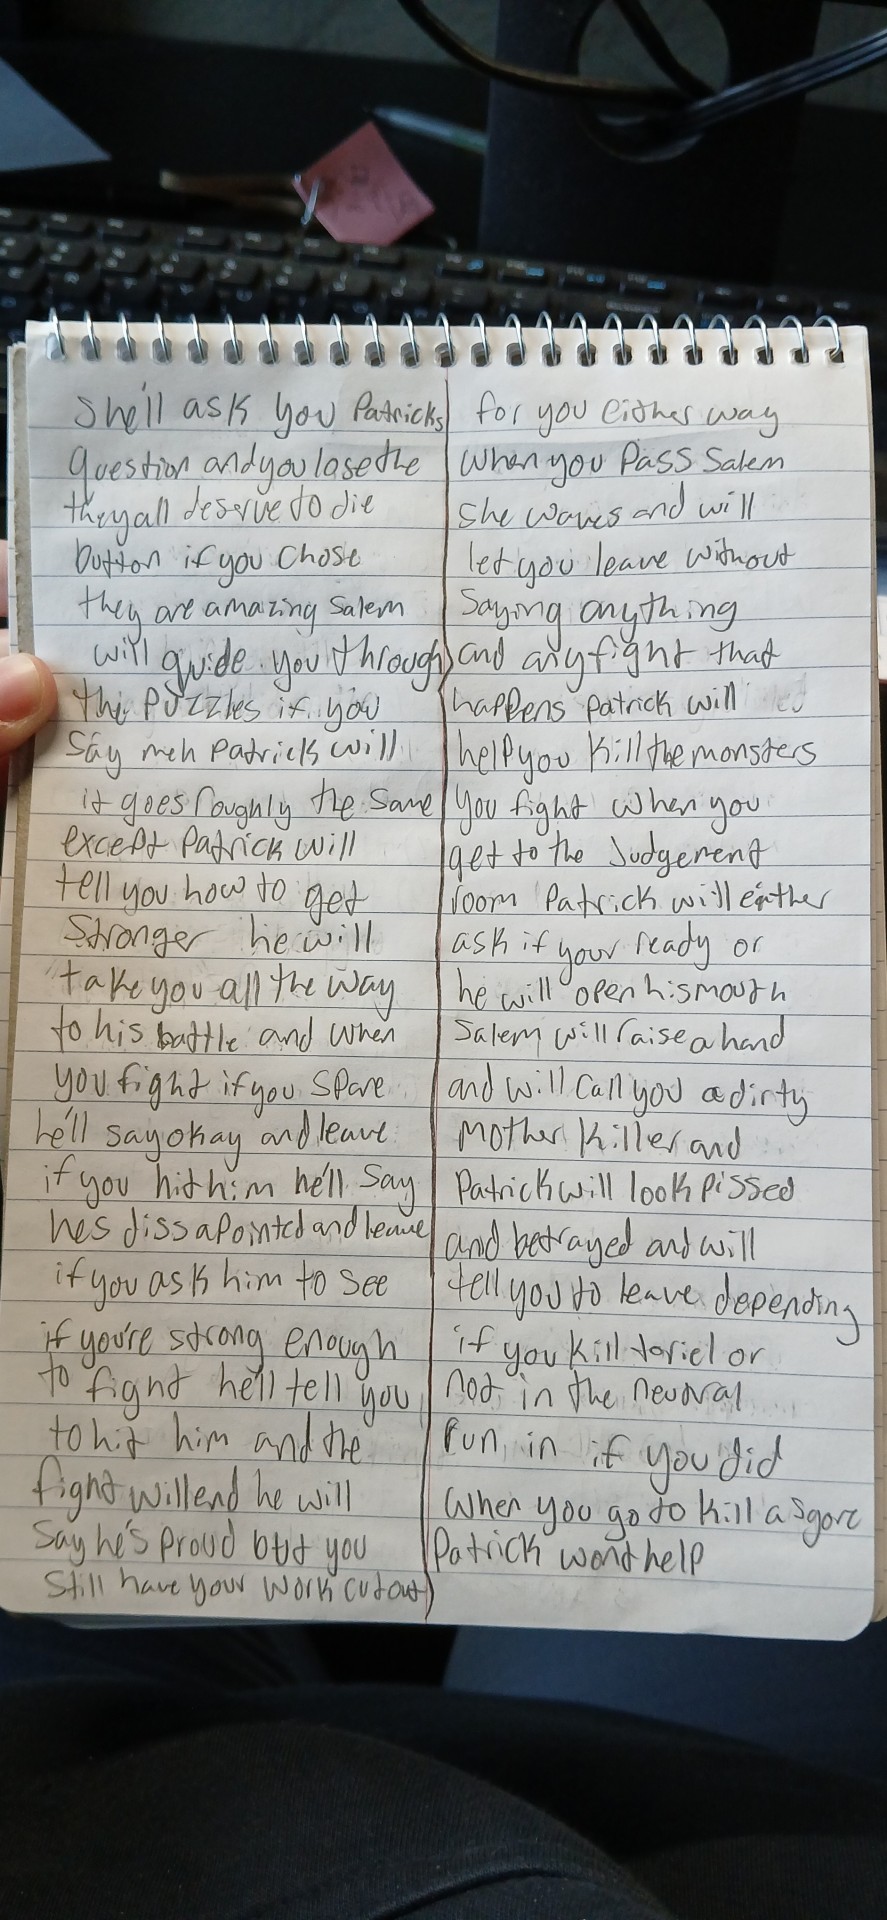 she'll ask you Patricks
question and you lose the
they all deserve to die
button if you chose
they are amazing Salem
will guide you through
the puzzles if you
say meh Patrick will
it goes roughly the same
except Patrick will
tell you how to get
stronger he will
take you all the way
to his battle and when
you fight if you spare
he'll say okay and leave
if you hit him he'll say
hes dissapointed and leave
if you ask him to see
if you're strong enough
to fight he'll tell you
to hit him and the
fight will end he will
say he's proud but you
still have your work cut out
for you either way
when you pass Salem
she waves and will
let you leave without
saying anything
and any fight that
happens Patrick will
help you kill the monsters
you fight when you
get to the Judgement
room Patrick will either
ask if your ready or
he will open his mouth
Salem will raise a hand
and will call you a dirty
mother killer and
Patrick will look pissed
and betrayed and will
tell you to leave depending
if you kill toriel or
not in the neutral
run, in if you did
when you go to kill asgore
Patrick wont help